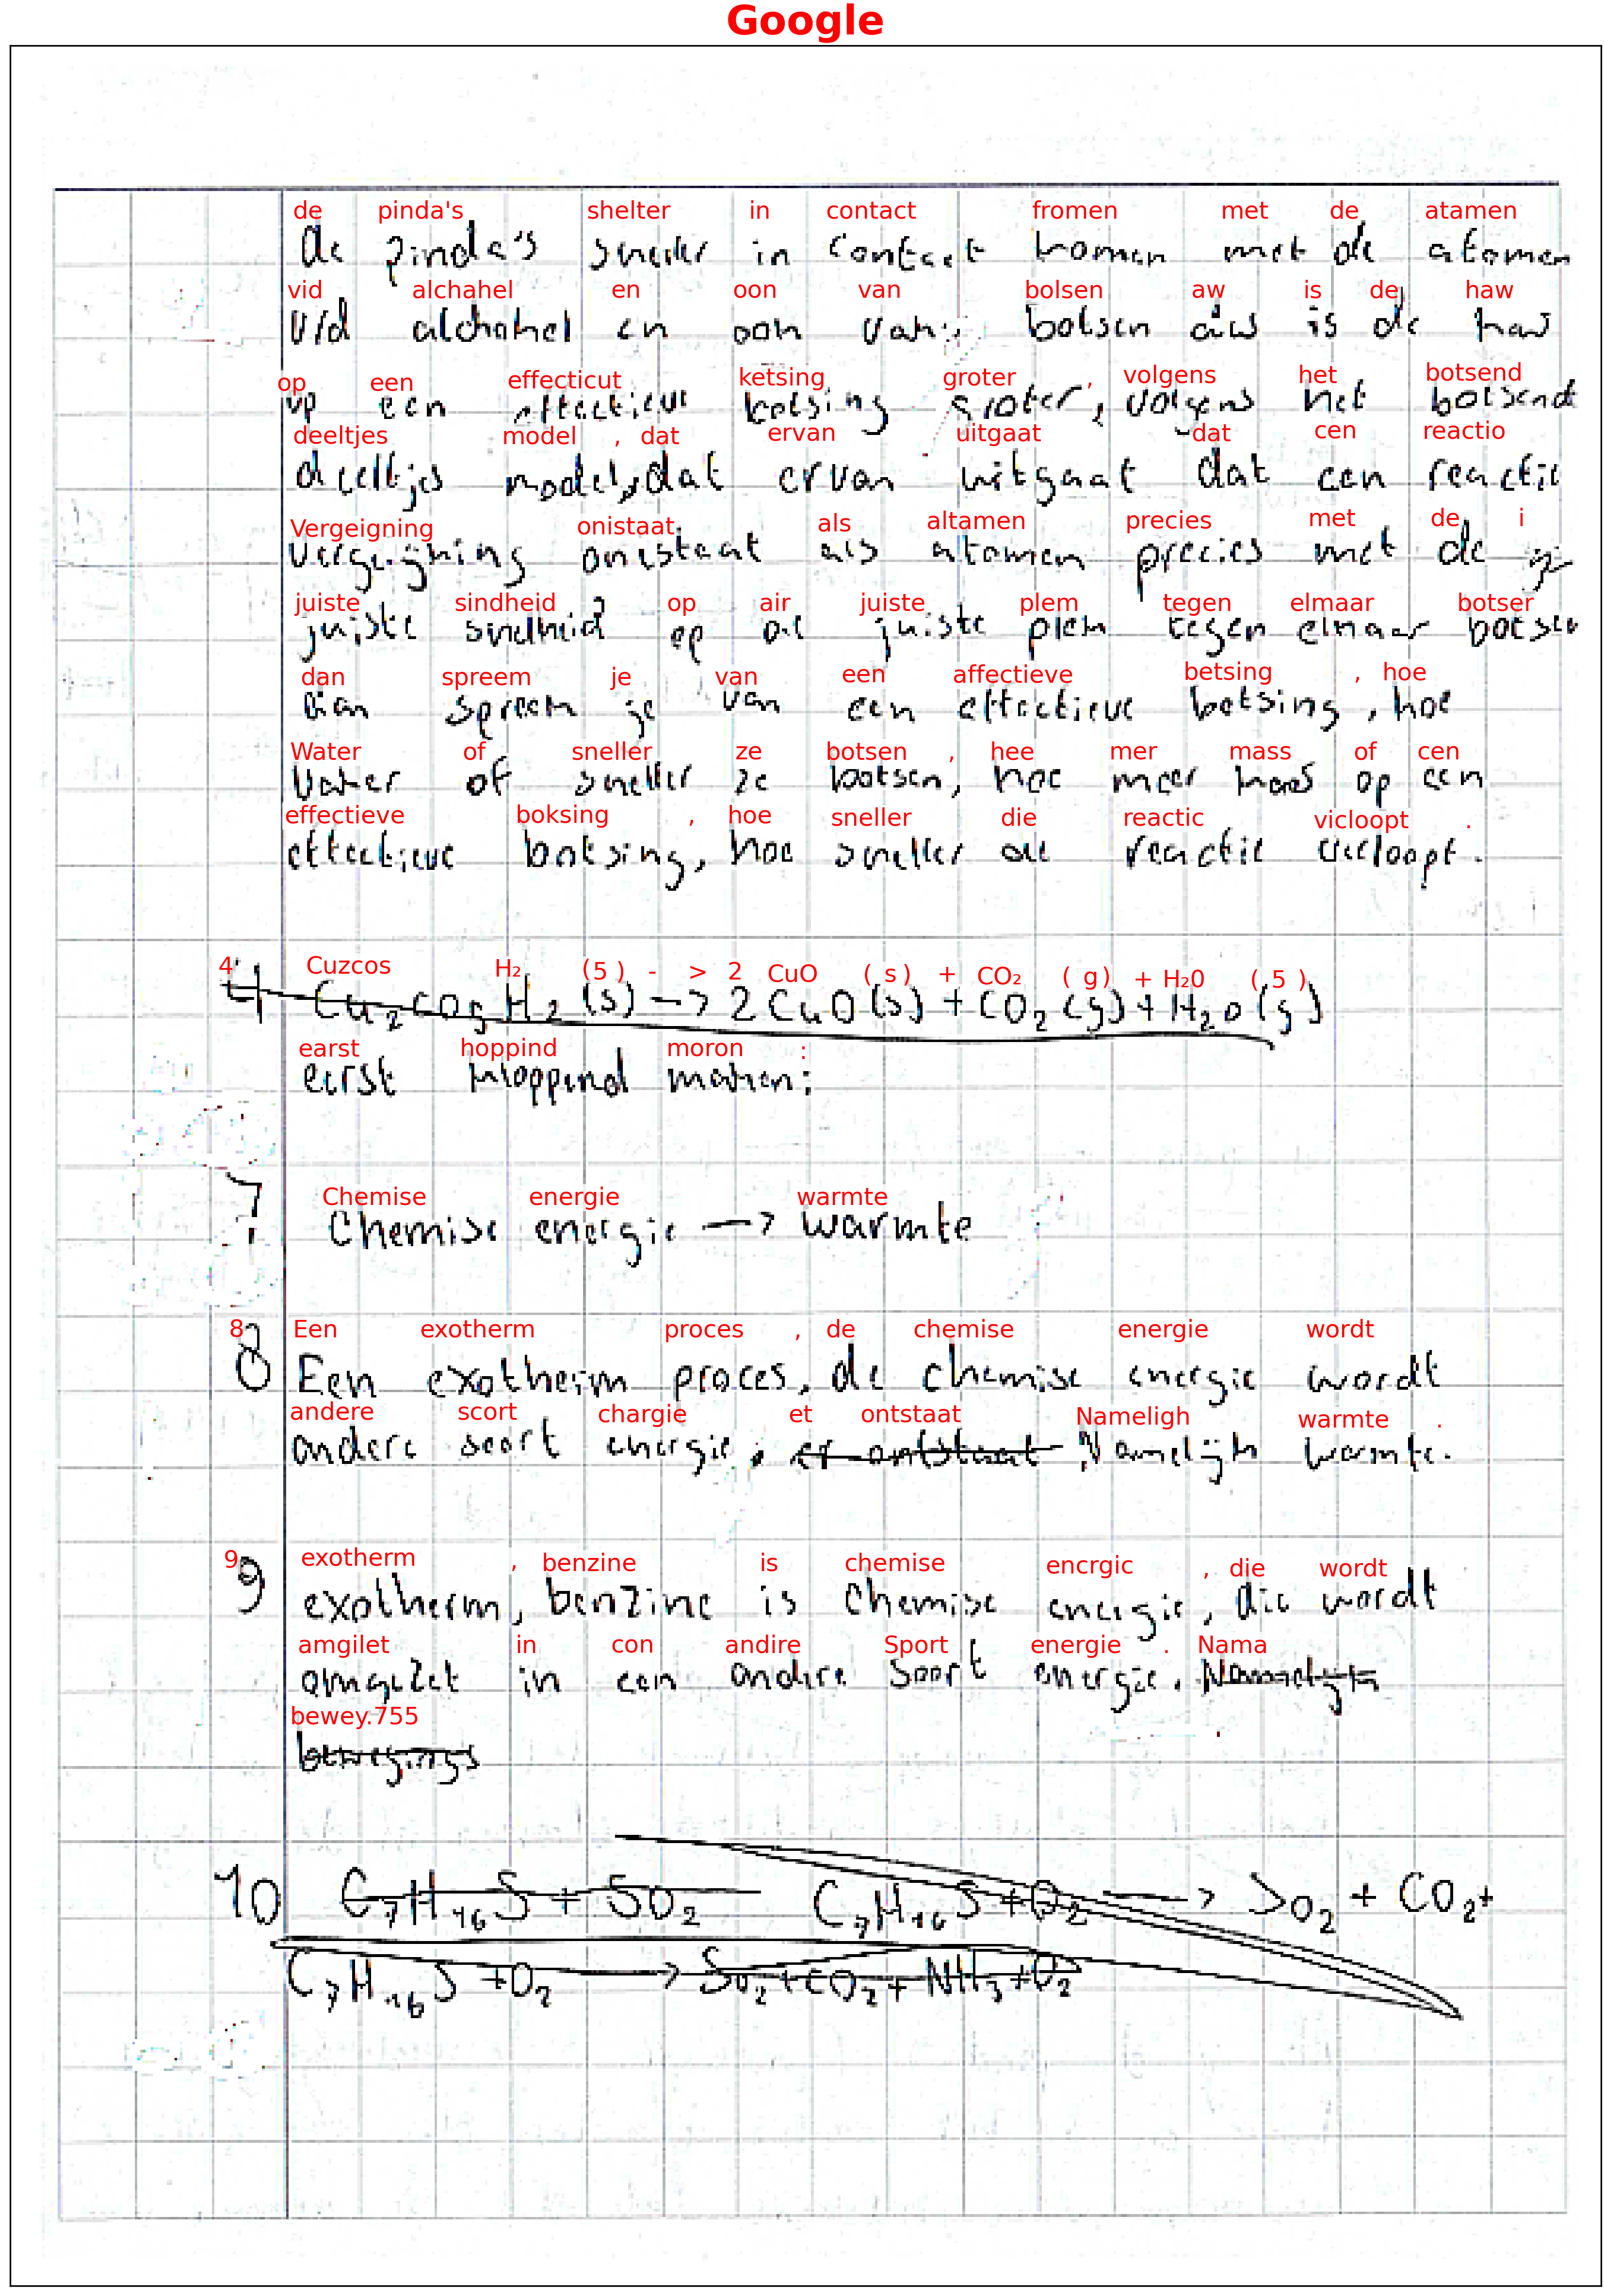 Google
de pinda's shelter in contact fromen met de atamen
de pinda's sneller in contact komen met de atomen
vid alchahel en oon van bolsen aw is de haw
v/d alchohol en oon van botsen dus is de kans
op een effecticut ketsing groter , volgens het botsend
op een effectieve botsing groter, volgens het botsend
deeltjes model , dat ervan uitgaat dat cen reactio
deeltjes model, dat ervan uitgaat dat een reactie
Vergeigning onistaat als altamen precies met de i
vergeijning onestaat als atomen precies met de
juiste sindheid op air juiste plem tegen elmaar botser
juiste snelheid op de juiste plek tegen elkaar botsen
dan spreem je van een affectieve betsing , hoe
dan spreek je van een effectieve botsing, hoe
Water of sneller ze botsen , hee mer mass of cen
vaker of sneller ze botsen, hoe meer kans op een
effectieve boksing , hoe sneller die reactic vicloopt .
effectieve botsing, hoe sneller de reactie verloopt.
4 Cuzcos H₂ (5) - > 2 CuO (s) + CO₂ (g) + H₂0 (5)
4 Cu2CO5H2 (s) -> 2 CuO (s) + CO2 (g) + H2O (g)
earst hoppind moron :
eerst kloppend maken:
Chemise energie warmte
7 Chemise energie -> warmte
8 Een exotherm proces , de chemise energie wordt
8 Een exotherm proces, de chemise energie wordt
andere scort chargie et ontstaat Nameligh warmte .
andere soort energie, er ontstaat Namelijk warmte.
9 exotherm , benzine is chemise encrgic , die wordt
9 exotherm, benzine is chemise energie, die wordt
amgilet in con andire Sport energie . Nama
omgezet in een andere soort energie. Namelijk
bewey.755
bewegings
10 C7H16S + SO2 C7H16S + O2 -> SO2 + CO2 +
C7H16S + O2 -> SO2 + CO2 + NH3 + O2